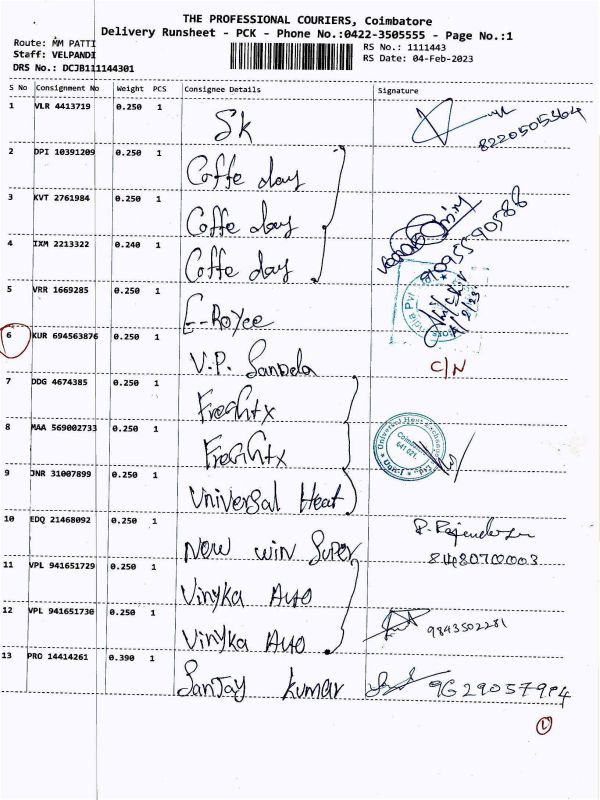 THE PROFESSIONAL COURIERS, Coimbatore
Delivery Runsheet - PCK - Phone No.:0422-3505555 - Page No.:1
Route: MM PATTI
Staff: VELPANDI
DRS No.: DCJB111144301
RS No.: 1111443
RS Date: 04-Feb-2023
S No Consignment No Weight PCS Consignee Details Signature
1 VLR 4413719 0.250 1 SK 8220505364
2 DPI 10391209 0.250 1 Coffe day
3 KVT 2761984 0.250 1 Coffe day
4 IXM 2213322 0.240 1 Coffe day
5 VRR 1669285 0.250 1 E-Royce
6 KUR 694563876 0.250 1 V.P. Sandela C/N
7 DDG 4674385 0.250 1 Freshtx
8 MAA 569002733 0.250 1 Freshtx
9 JNR 31007899 0.250 1 Universal Heat
10 EDQ 21468092 0.250 1 New win Super
11 VPL 941651729 0.250 1 Vinyka Auto
12 VPL 941651730 0.250 1 Vinyka Auto 9843502281
13 PRO 14414261 0.390 1 Sanjay kumar